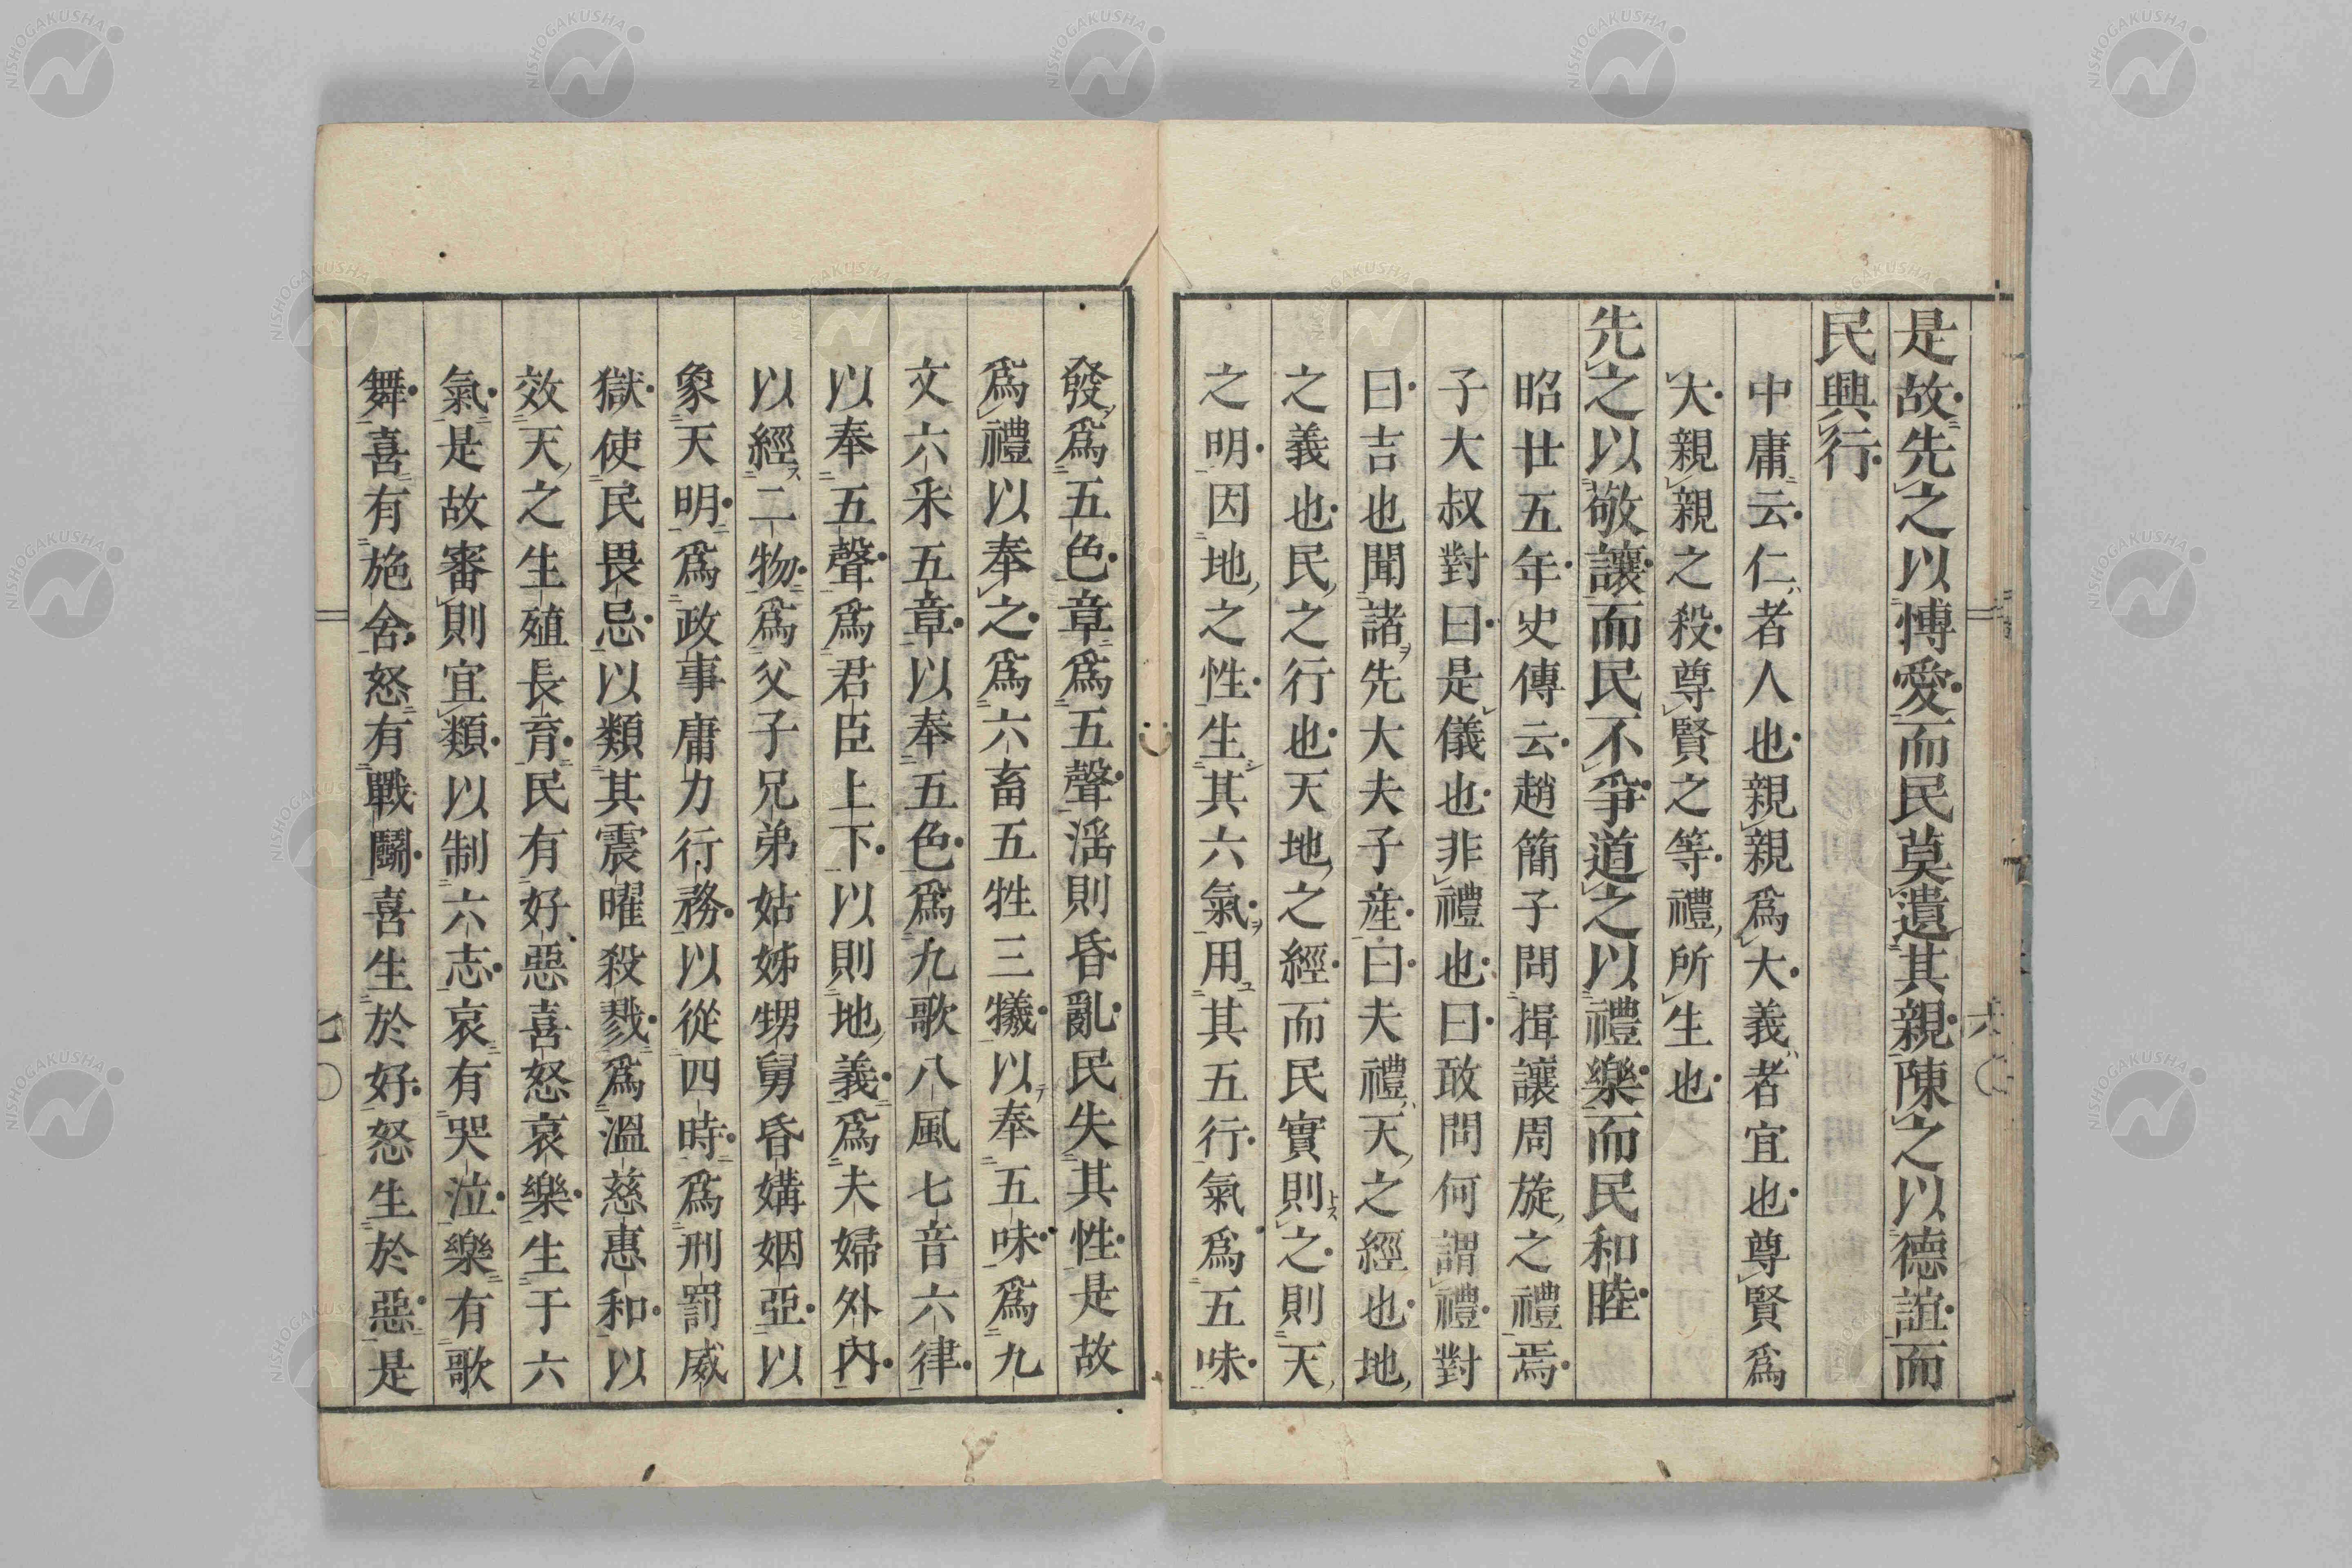 是故先之以愽愛而民莫遺其親陳之以德誼而
民興行
中庸云仁者人也親親爲大義者宜也尊賢爲
大親親之殺尊賢之等禮所生也
先之以敬讓而民不爭道之以禮樂而民和睦
昭廿五年史傳云趙簡子問揖讓周旋之禮焉
子大叔對曰是儀也非禮也曰敢問何謂禮對
曰吉也聞諸先大夫子産曰夫禮天之經也地
之義也民之行也天地之經而民實則之則天
之明因地之性生其六氣用其五行氣爲五味
發爲五色章爲五聲淫則昏亂民失其性是故
爲禮以奉之爲六畜五牲三犧以奉五味爲九
文六采五章以奉五色爲九歌八風七音六律
以奉五聲爲君臣上下以則地義爲夫婦外內
以經二物爲父子兄弟姑姊甥舅昏媾姻亞以
象天明爲政事庸力行務以從四時爲刑罰威
獄使民畏忌以類其震曜殺戮爲溫慈惠和以
效天之生殖長育民有好惡喜怒哀樂生于六
氣是故審則宜類以制六志哀有哭泣樂有歌
舞喜有施舍怒有戰鬭喜生於好怒生於惡是
六
七
NISHOGAKUSHA